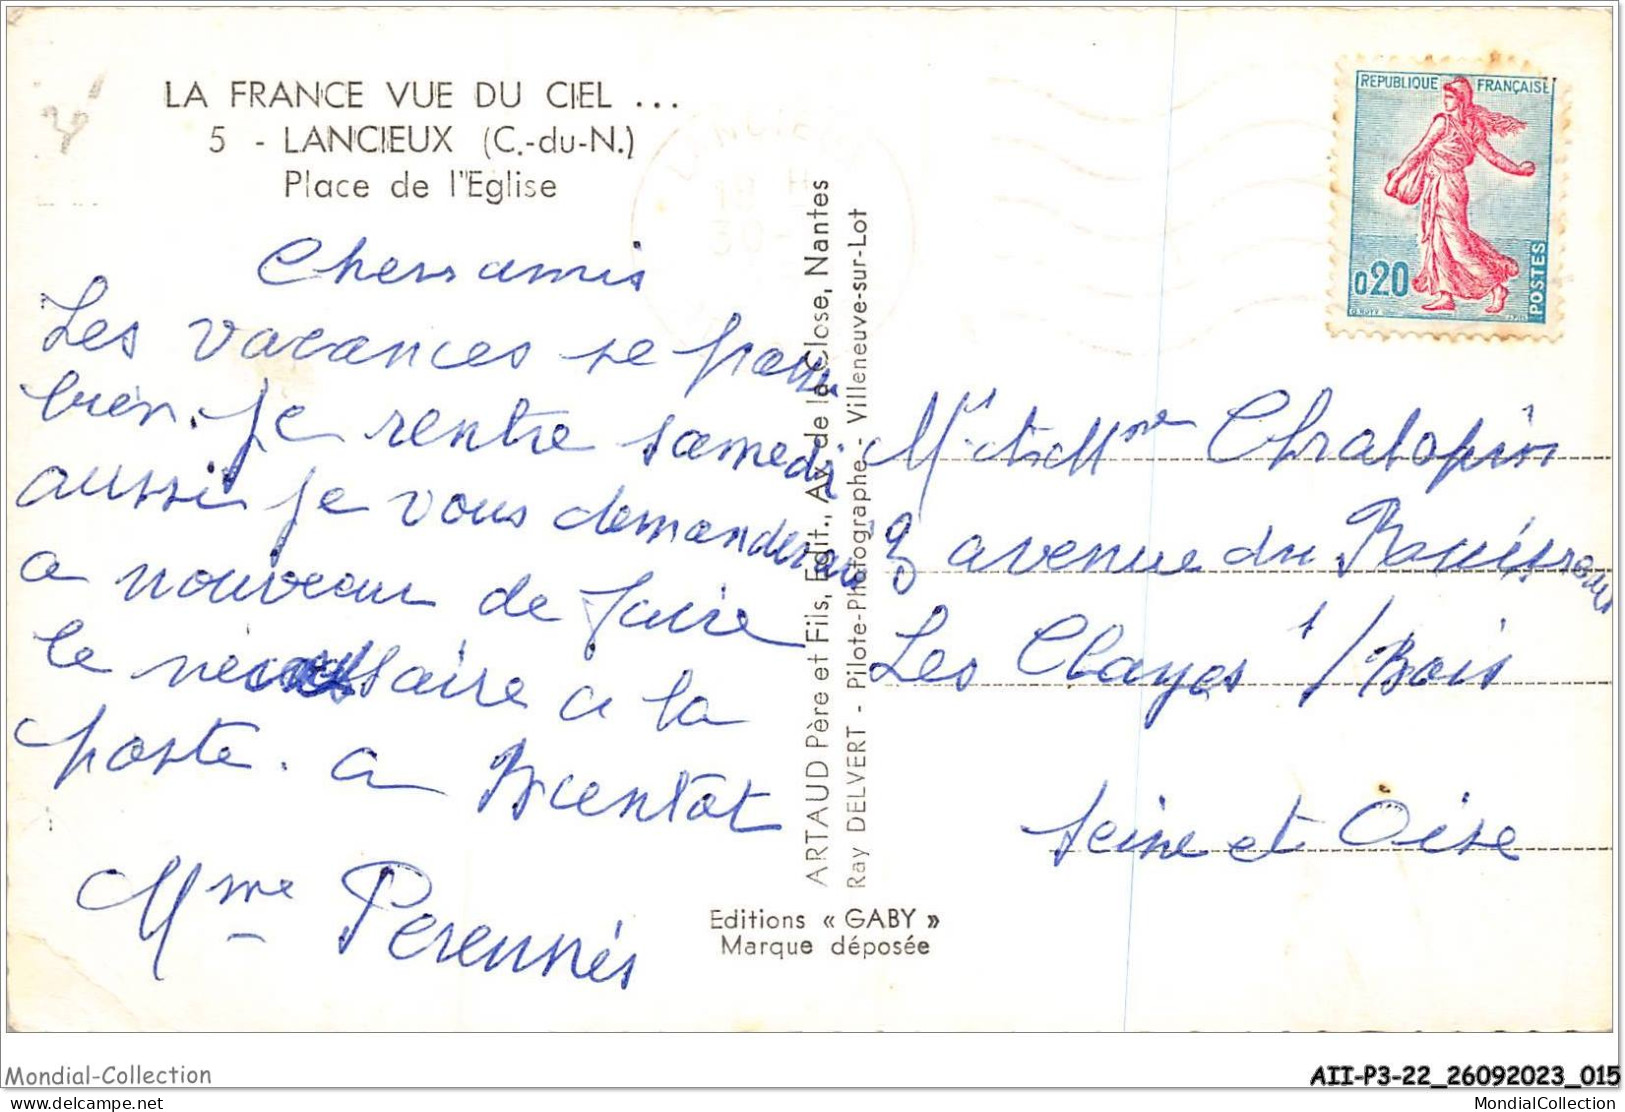 LA FRANCE VUE DU CIEL ...
5 - LANCIEUX (C.-du-N.)
Place de l''Eglise
Chers amis
Les vacances se passe
bien. Je rentre samedi
aussi je vous demanderai
a nouveau de faire
le nécessaire a la
poste. a Bientot
Mme Perennés
ARTAUD Père et Fils, Edit., Av. de la Close, Nantes
Ray DELVERT - Pilote-Photographe - Villeneuve-sur-Lot
Editions « GABY »
Marque déposée
REPUBLIQUE FRANÇAISE
0,20
POSTES
Mr et Mme
avenue du
Les Clayes s/Bois
Seine et Oise
Mondial-Collection
AII-P3-22_26092023_015
delcampe.net
MondialCollection